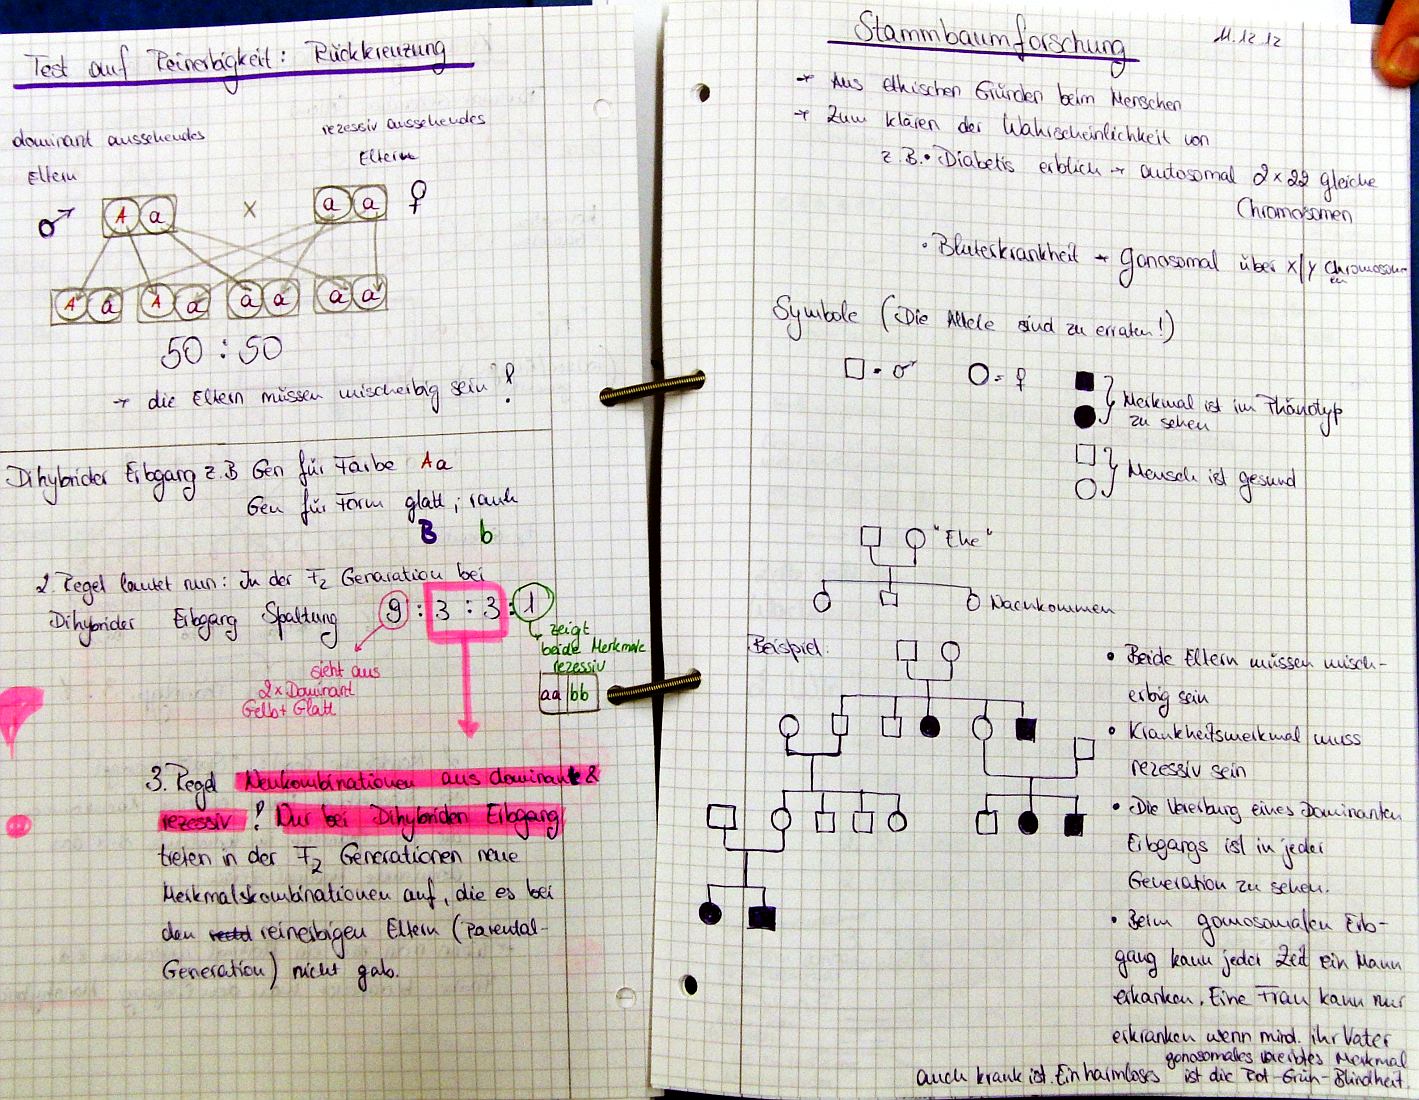 Test auf Reinerbigkeit: Rückkreuzung
dominant aussehendes
Eltern
rezessiv aussehendes
Eltern
♂ A a x a a ♀
A a A a a a a a
50 : 50
→ die Eltern müssen mischerbig sein!
Dihybrider Erbgang z.B Gen für Farbe Aa
Gen für Form glatt, rauh
B b
2. Regel lautet nun: In der F2 Genaration bei
Dihybrider Erbgang Spaltung 9 : 3 : 3 : 1
zeigt
beide Merkmale
rezessiv
aa bb
sieht aus
2x Dominant
Gelb + Glatt
3. Regel Neukombinationen aus dominant &
rezessiv! Nur bei Dihybriden Erbgang
treten in der F2 Generationen neue
Merkmalskombinationen auf, die es bei
den reinerbigen Eltern (Parental-
Generation) nicht gab.
Stammbaumforschung
11.12.12
→ Aus ethischen Gründen beim Menschen
→ Zum klären der Wahrscheinlichkeit von
z.B. • Diabetis erblich → autosomal 2x22 gleiche
Chromosomen
• Bluterkrankheit → gonosomal über X/Y Chromosomen
Symbole (Die Allele sind zu erraten!)
□ = ♂ ○ = ♀
Merkmal ist im Phänotyp
zu sehen
Mensch ist gesund
"Ehe"
Nachkommen
Beispiel:
• Beide Eltern müssen misch-
erbig sein
• Krankheitsmerkmal muss
rezessiv sein
• Die Vererbung eines Dominanten
Erbgangs ist in jeder
Generation zu sehen.
• Beim gonosomalen Erb-
gang kann jeder Zeit ein Mann
erkanken. Eine Frau kann nur
erkranken wenn mind. ihr Vater
auch krank ist. Ein harmloses gonosomales vererbtes Merkmal
ist die Rot-Grün-Blindheit